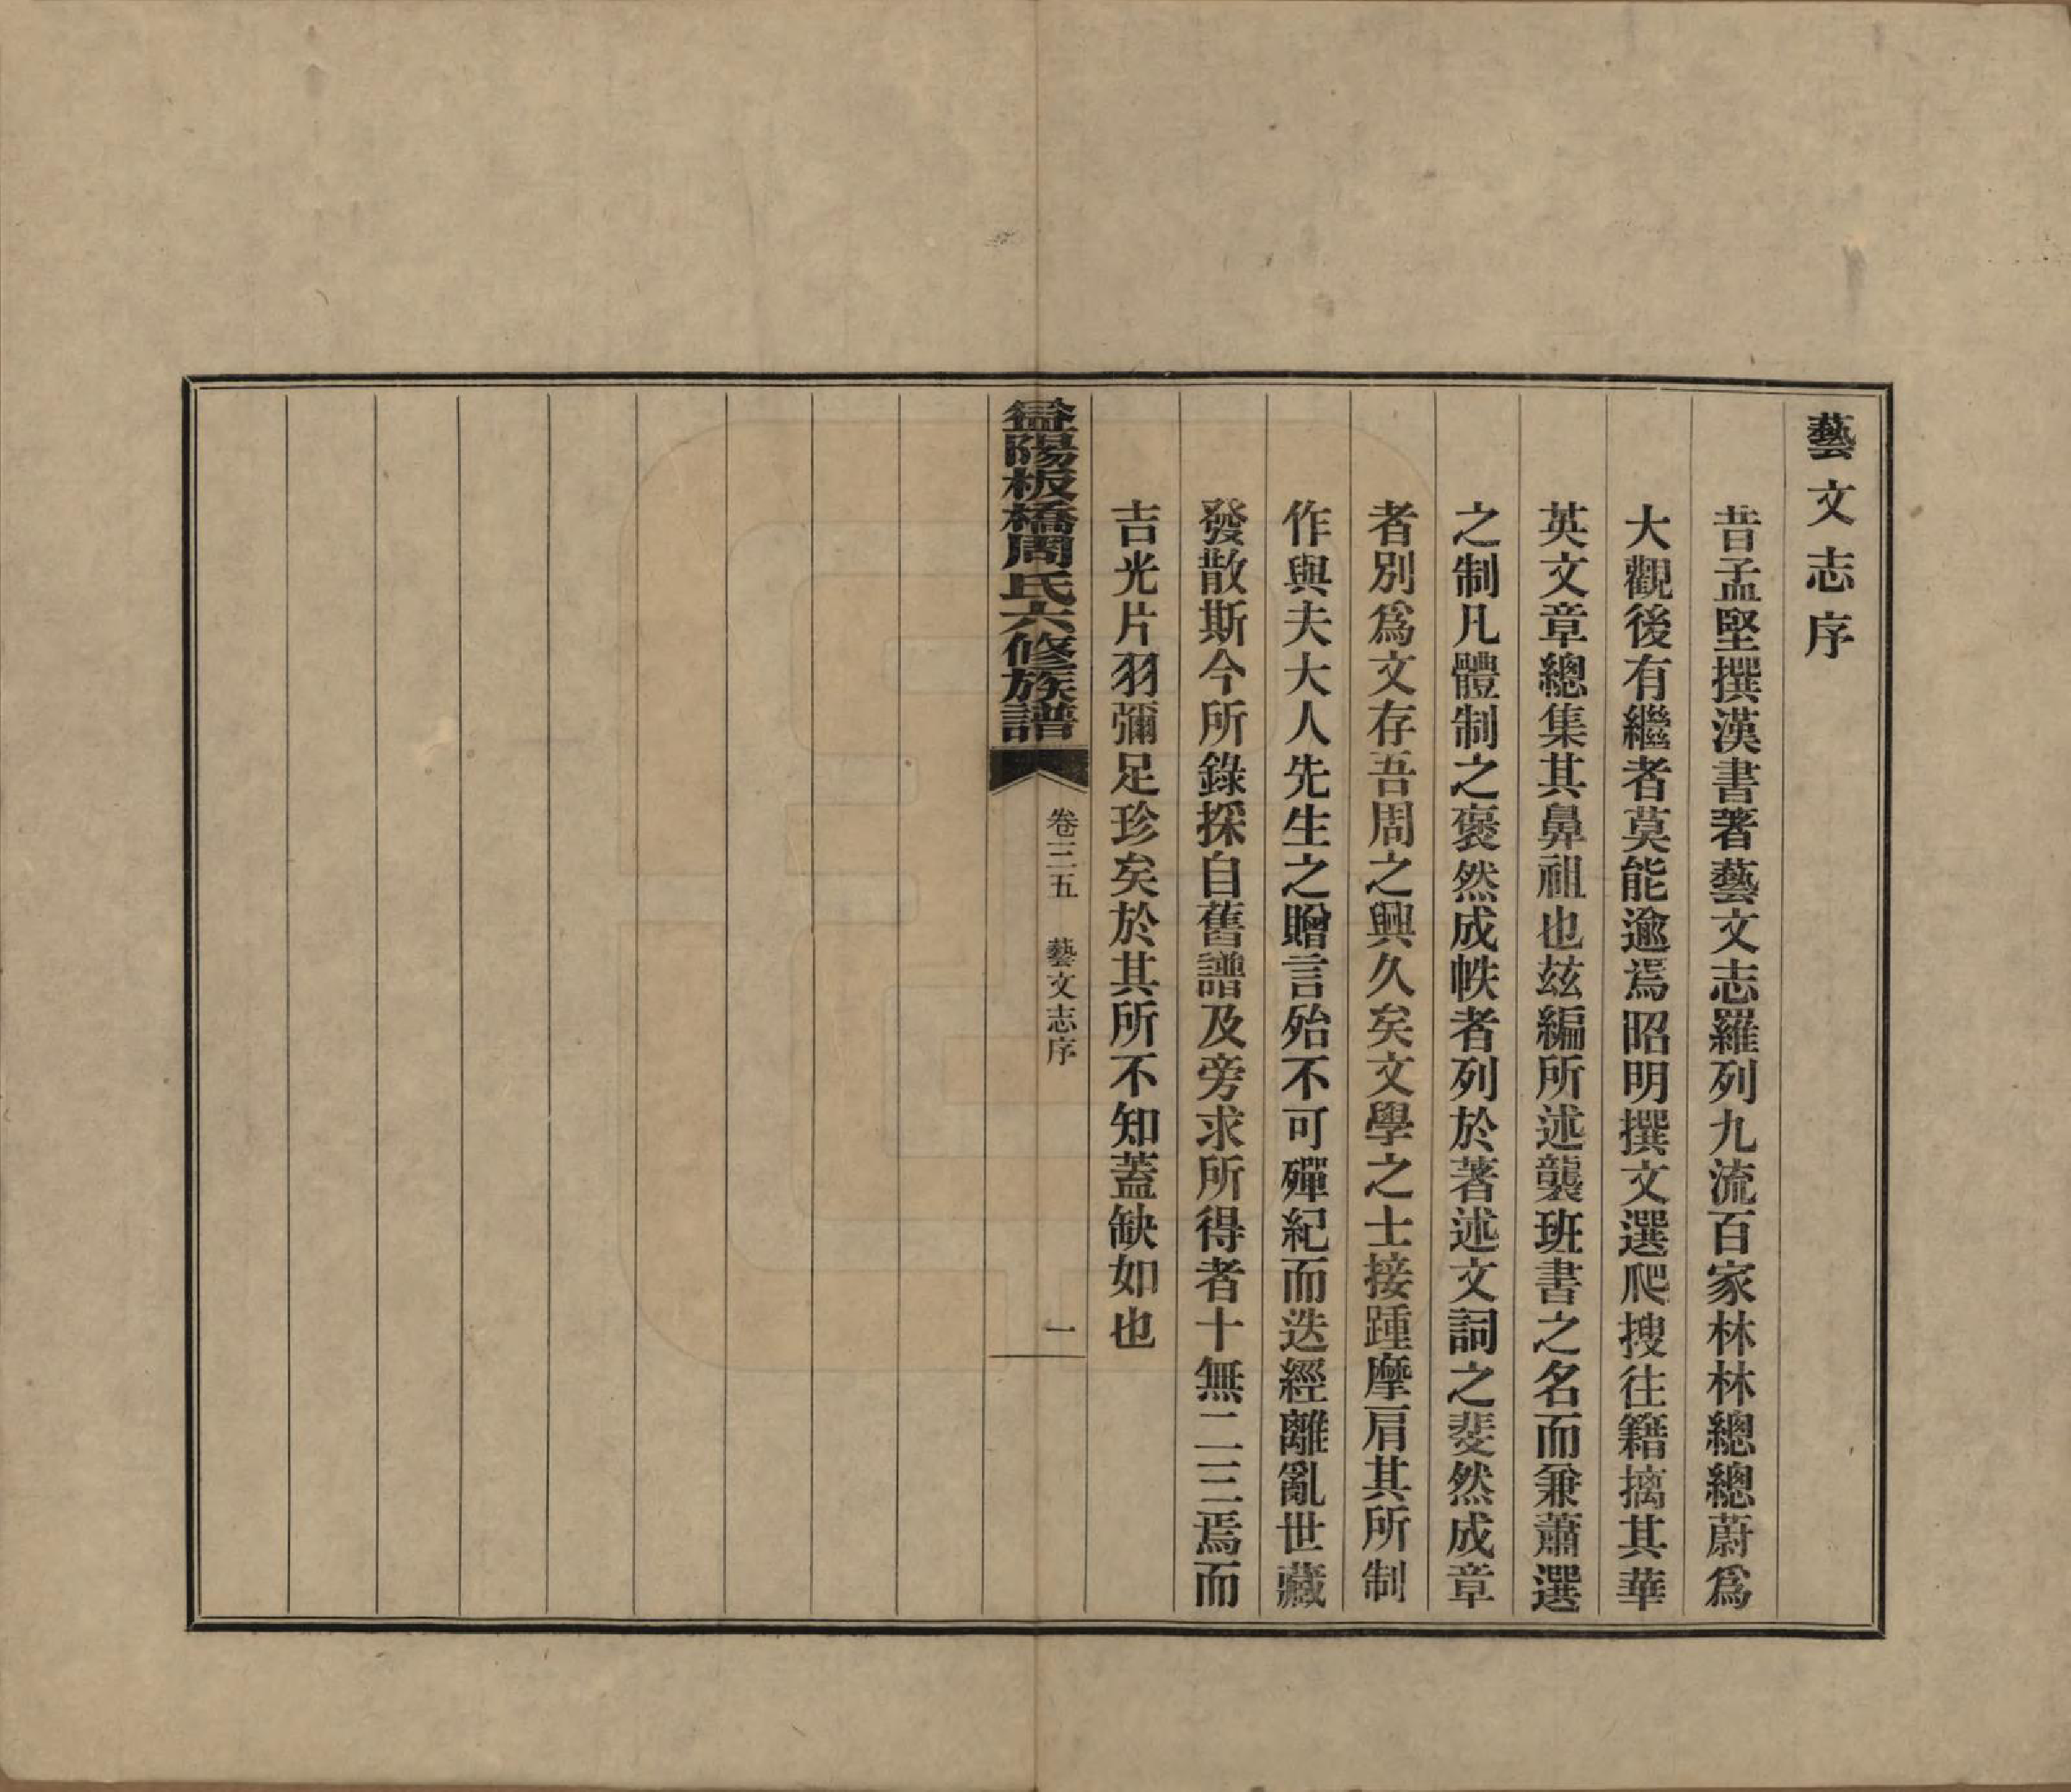 藝文志序
昔孟堅撰漢書著藝文志羅列九流百家林林總總蔚爲
大觀後有繼者莫能逾焉昭明撰文選爬搜往籍摛其華
英文章總集其鼻祖也玆編所述襲班書之名而兼蕭選
之制凡體制之褒然成帙者列於著述文詞之斐然成章
者別爲文存吾周之興久矣文學之士接踵摩肩其所制
作與夫大人先生之贈言殆不可殫紀而迭經離亂世藏
發散斯今所錄採自舊譜及旁求所得者十無二三焉而
吉光片羽彌足珍矣於其所不知蓋缺如也
益陽板橋周氏六修族譜
卷三五 藝文志序
一